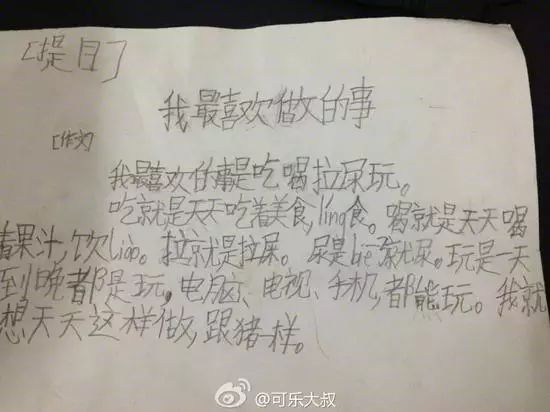 [提目]
我最喜欢做的事
[作文]
我最喜欢的事是吃喝拉尿玩。
吃就是天天吃着美食,ling食。喝就是天天喝
着果汁,饮liao。拉就是拉屎。尿是bie不了就尿。玩是一天
到晚都是玩。电脑、电视、手机,都能玩。我就
想天天这样做,跟猪一样。
@可乐大叔